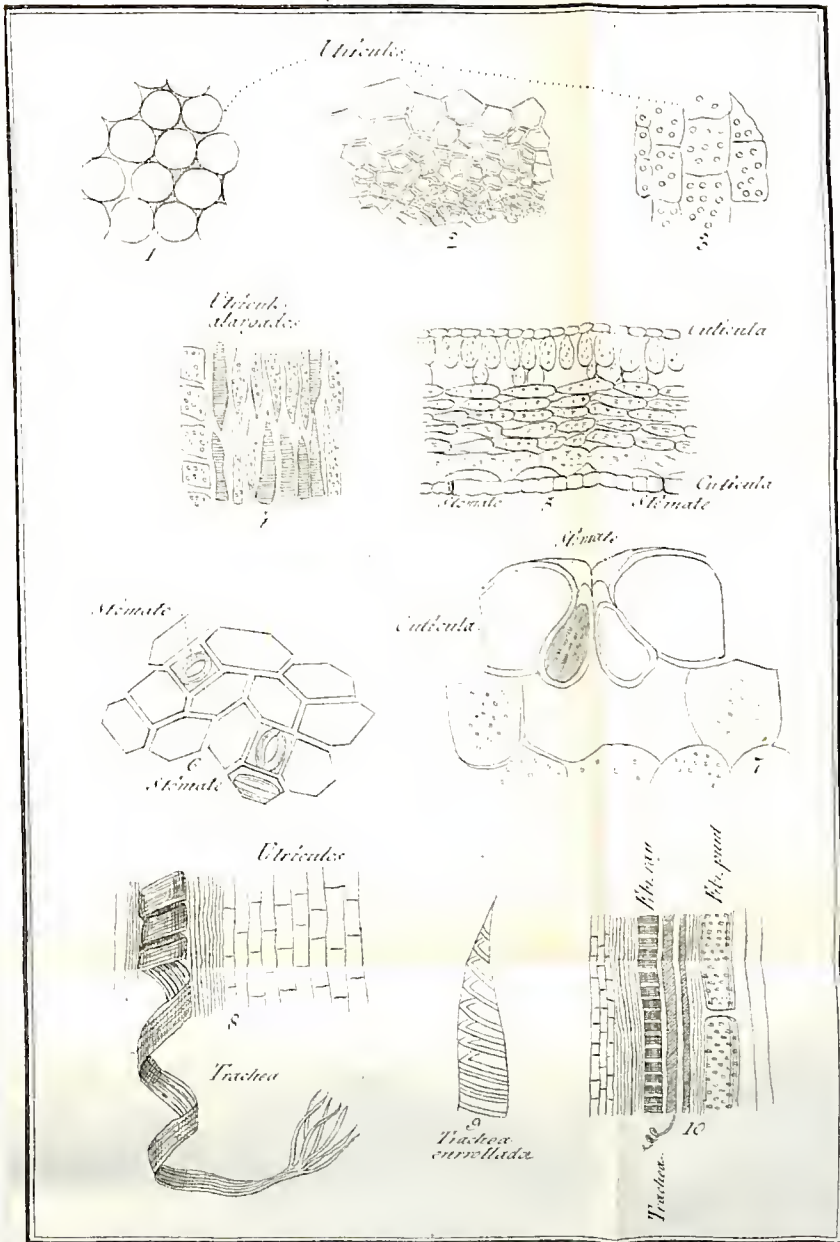 Utrícules
1
2
3
Utrícul.
alargades
Cutícula
Cutícula
Stómate
5
Stómate
4
Stómate
Stómate
Cutícula
6
Stómate
7
Utrícules
8
Trachea
9
Trachea
enrrollada
Fib. ray
Fib. punt
10
Trachea